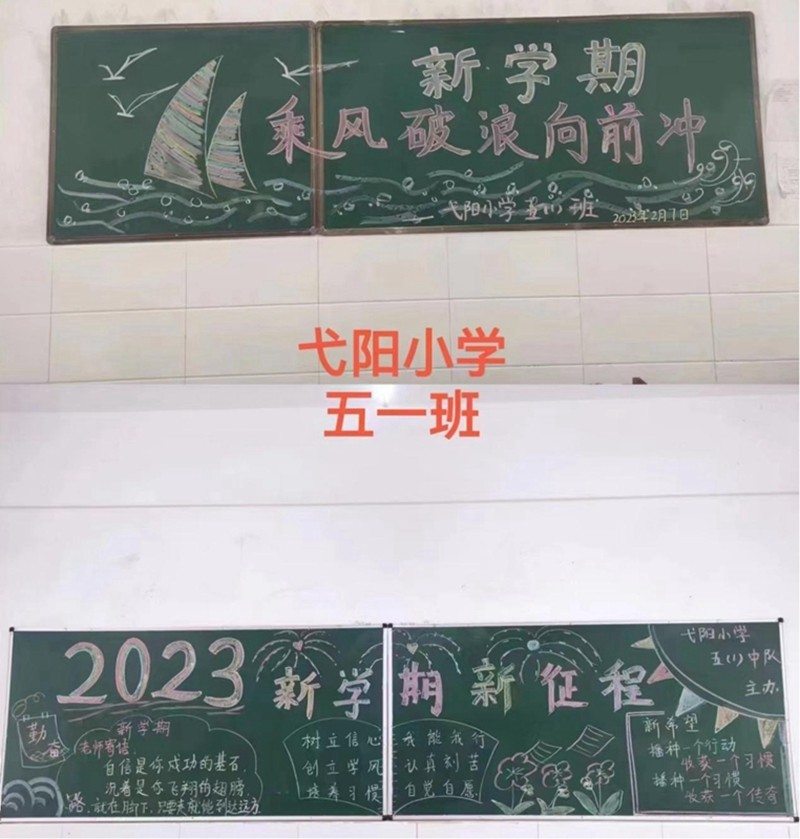 新学期
乘风破浪向前冲
弋阳小学五(1)班
2023年2月1日
弋阳小学
五一班
2023 新学期新征程
弋阳小学
五(1)中队
主办
勤
奋
新学期
老师寄语
自信是你成功的基石,
沉着是你飞翔的翅膀,
路,就在脚下,只要走就能到达远方
树立信心 我能我行
创立学风 认真刻苦
培养习惯 自觉自愿
新希望
播种一个行动
收获一个习惯
播种一个习惯
收获一个传奇